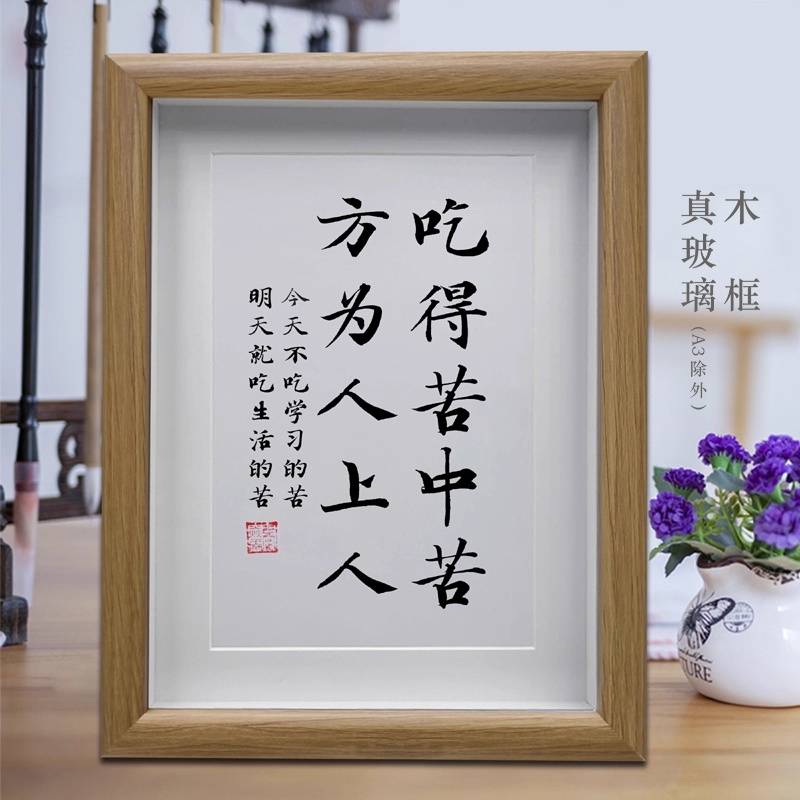 吃得苦中苦
方为人上人
今天不吃学习的苦
明天就吃生活的苦
木框
真玻璃
(A3除外)